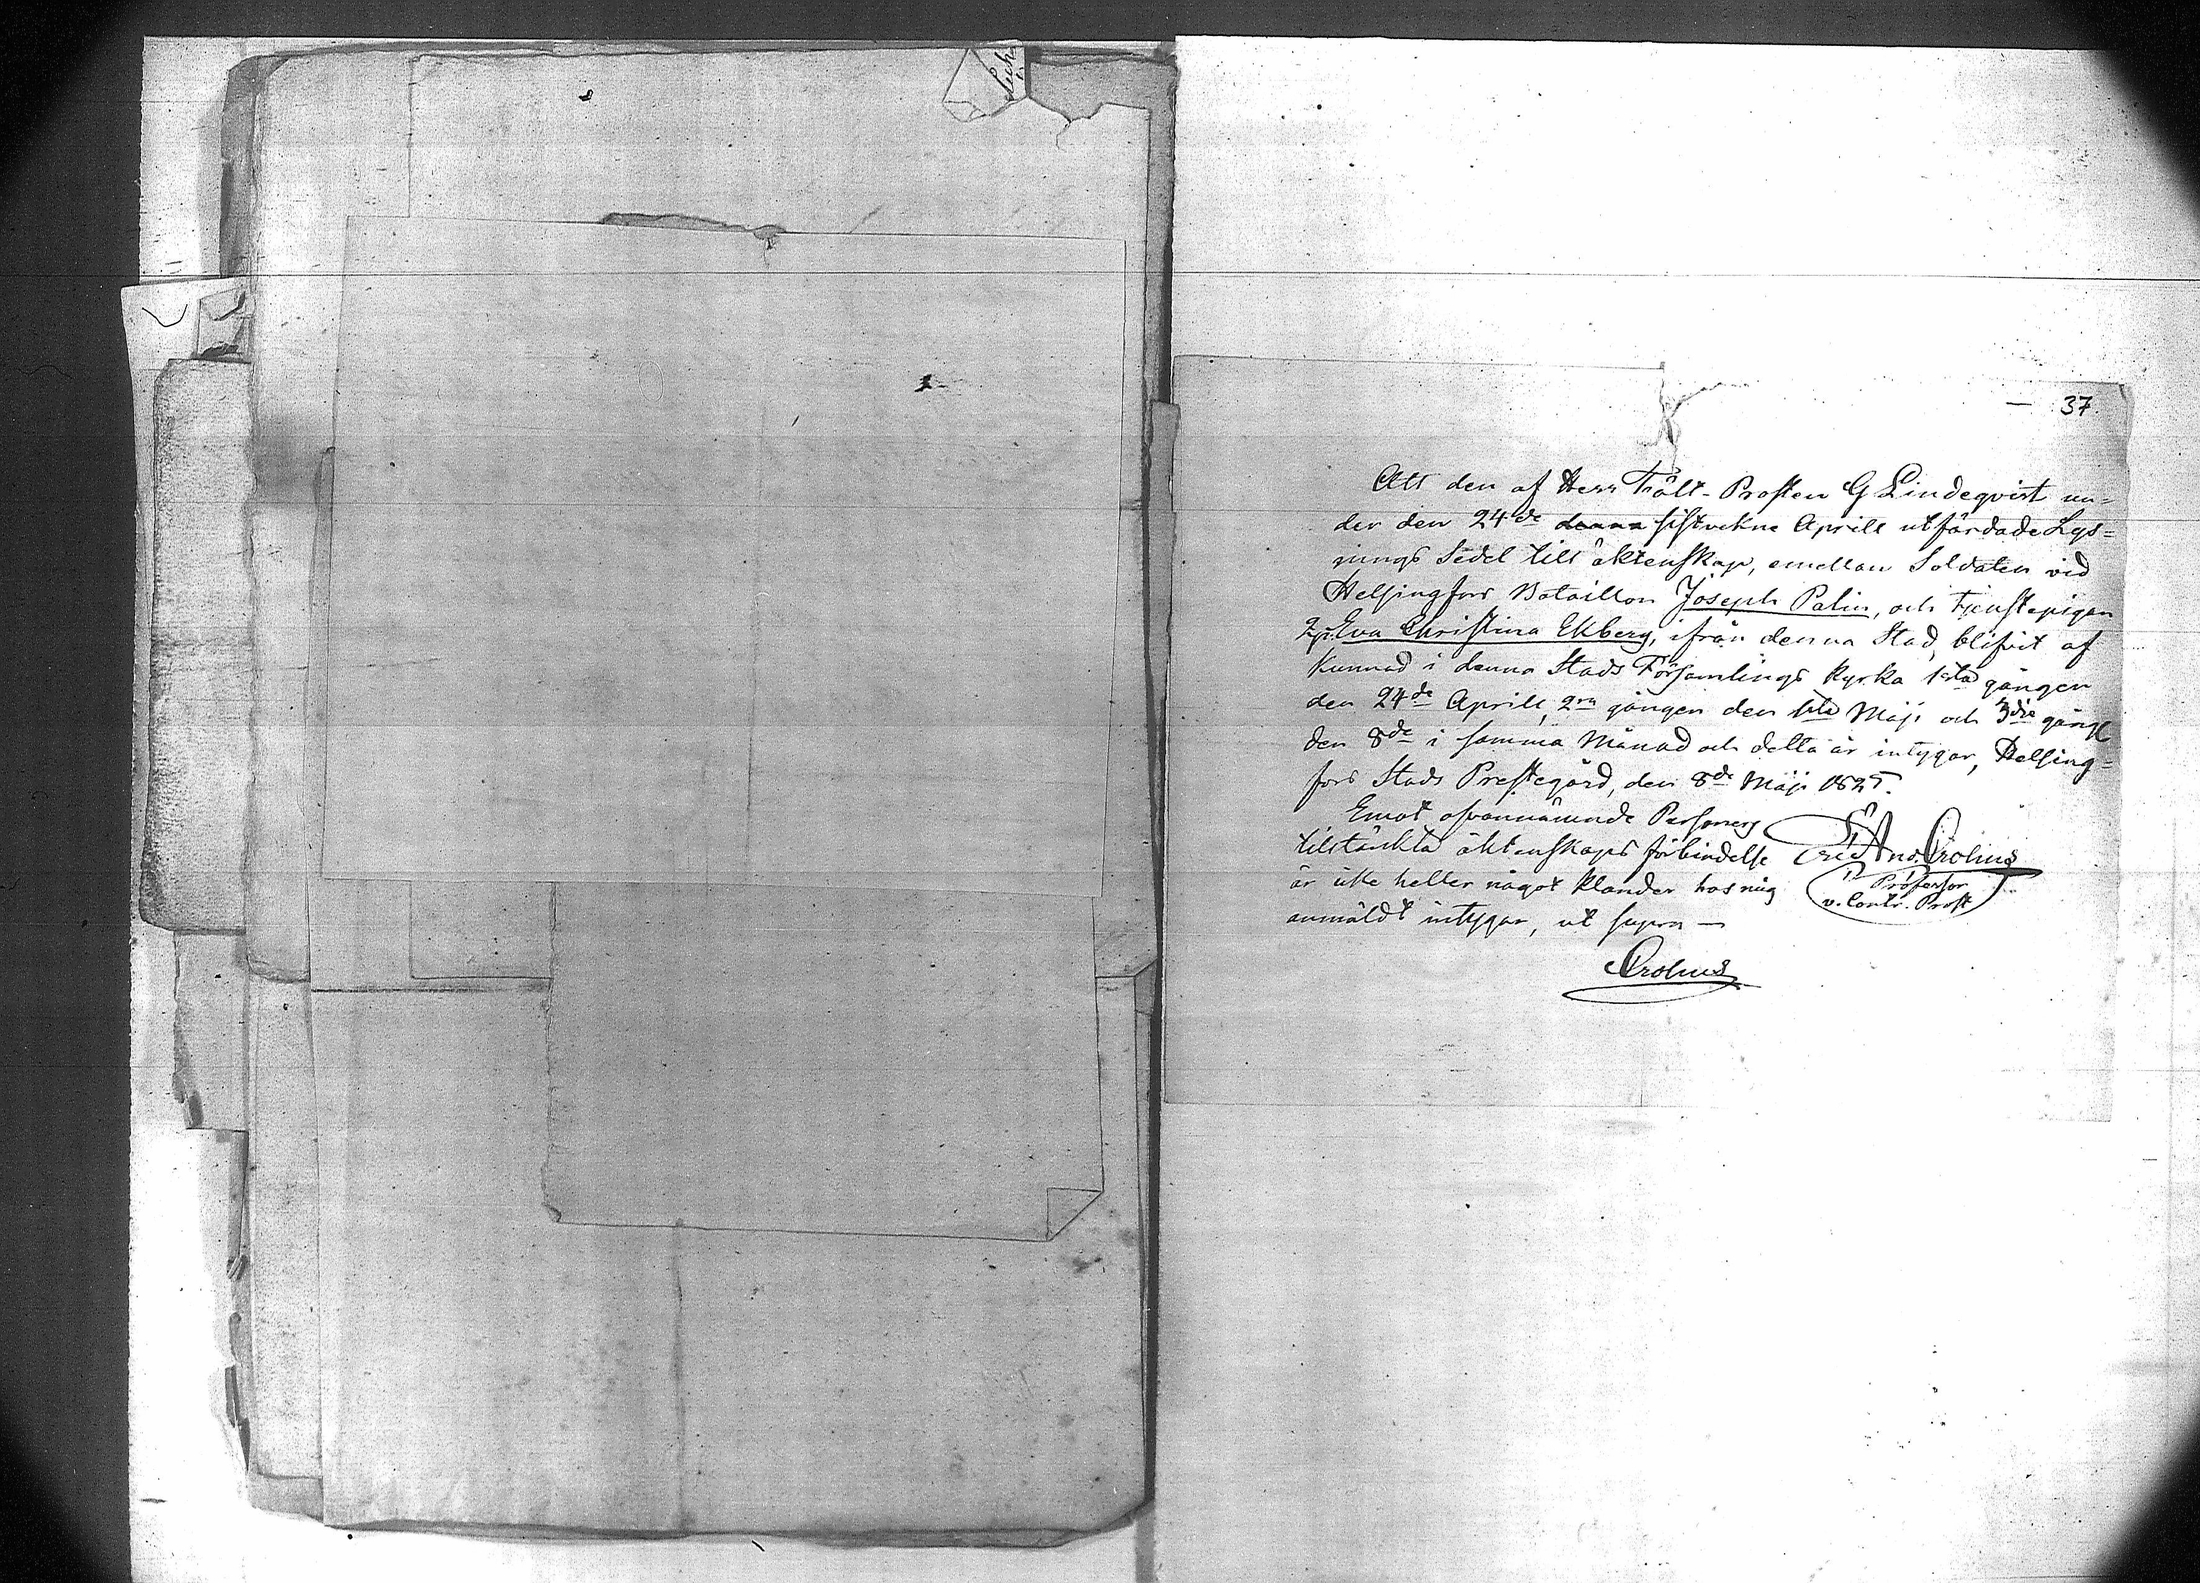 37.
Att den af Herr Fält-Prosten G Lindeqvist un=
der den 24de denna sistvekne Aprill utfärdade Lys=
nings Sedel till äktenskap, emellan Soldaten vid
Helsingfors Bataillon Joseph Palin, och tjenstepigan
Eva Christina Ekberg, ifrån denna Stad, blifvit af
kunnad i denna Stads Församlings Kyrka 1sta gången
den 24de Aprill, 2ra gången den 1sta Maji och 3die gång
den 8de i samma Månad och detta är intygar, Helsing=
fors Stads Prestegård, den 8de Maji 1825.
Emot ofvannämnde Personers
tilltänkta äktenskaps förbindelse
är icke heller något klander hos mig
anmäldt intygar, ut supra —
Eric And. Crolius
Professor
v. Contr. Prost
Crolius